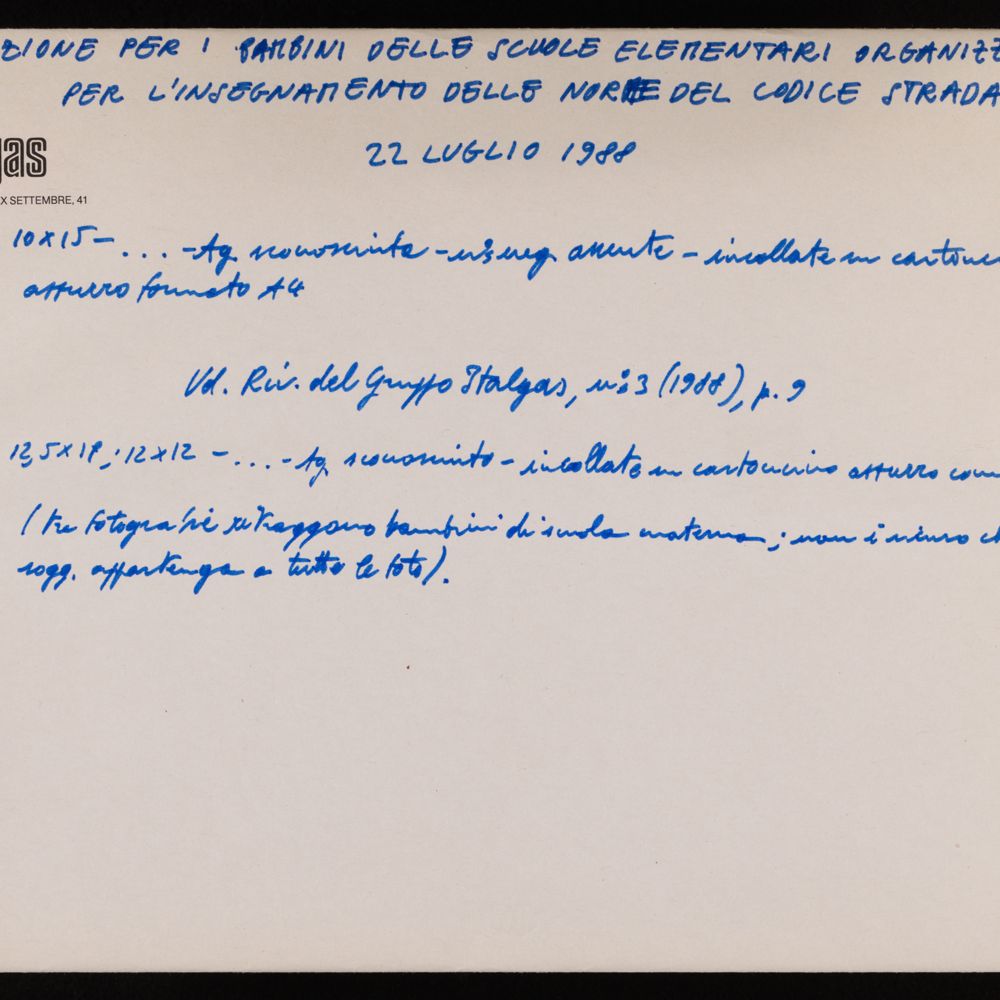 ZIONE PER I BAMBINI DELLE SCUOLE ELEMENTARI ORGANIZZ
PER L'INSEGNAMENTO DELLE NORME DEL CODICE STRADA
22 LUGLIO 1988
gas
X SETTEMBRE, 41
10x15 - ... - Ag sconosciuta - n° neg assente - incollate su cartonci
azzurro formato A4
Vd. Riv. del Gruppo Italgas, n° 3 (1988), p. 9
12,5x17; 12x12 - ... - Ag sconosciuto - incollate su cartoncino azzurro
(tre fotografie ritraggono bambini di scuola materna; non è sicuro ch
sogg. appartenga a tutte le foto).